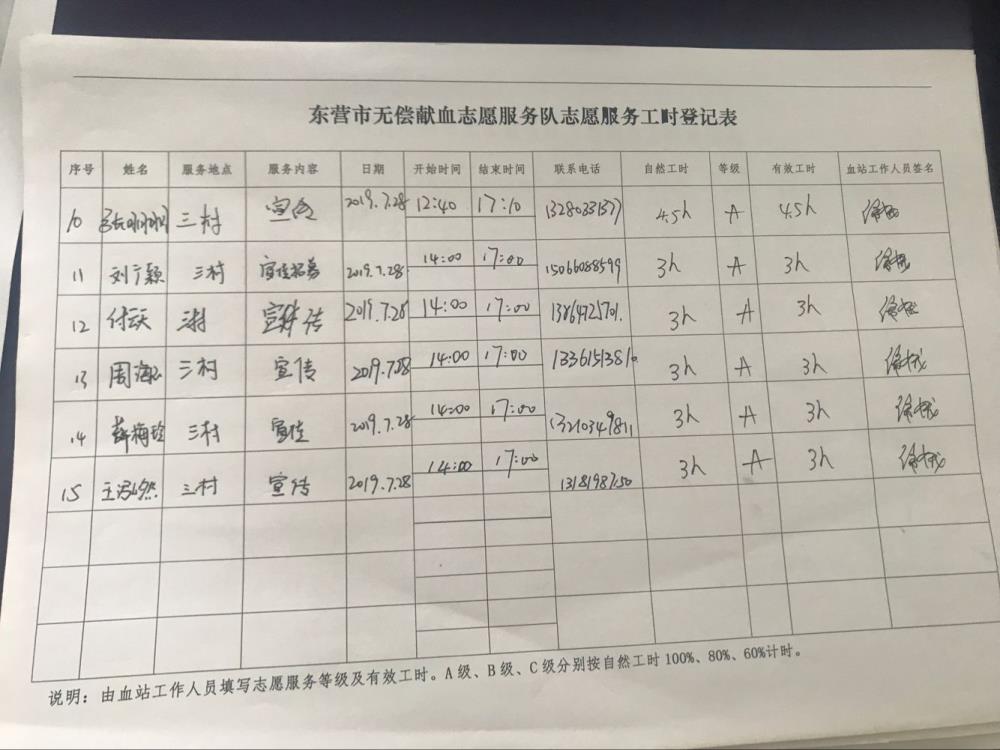 东营市无偿献血志愿服务队志愿服务工时登记表
序号 姓名 服务地点 服务内容 日期 开始时间 结束时间 联系电话 自然工时 等级 有效工时 血站工作人员签名
10 三村 宣传 2019.7.28 12:40 17:10 13280331577 4.5h A 4.5h
11 刘广颖 三村 宣传招募 2019.7.28 14:00 17:00 15066088599 3h A 3h
12 付云天 三村 宣传 2019.7.28 14:00 17:00 13864725701. 3h A 3h
13 周海 三村 宣传 2019.7.28 14:00 17:00 3h A 3h
14 薛梅玲 三村 宣传 2019.7.28 14:00 17:00 13210349811 3h A 3h
15 王 三村 宣传 2019.7.28 14:00 17:00 3h A 3h
说明：由血站工作人员填写志愿服务等级及有效工时。A级、B级、C级分别按自然工时100%、80%、60%计时。